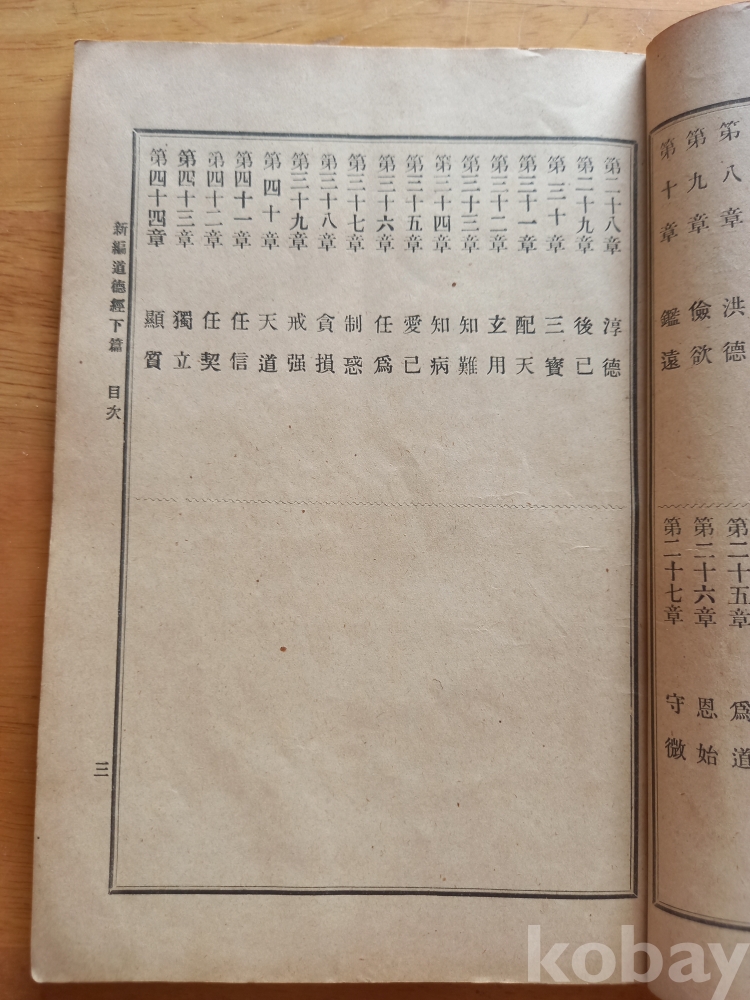 第八章 洪德
第九章 儉欲
第十章 鑑遠
第二十五章 爲道
第二十六章 恩始
第二十七章 守微
第二十八章 淳德
第二十九章 後己
第三十章 三寶
第三十一章 配天
第三十二章 玄用
第三十三章 知難
第三十四章 知病
第三十五章 愛己
第三十六章 任爲
第三十七章 制惑
第三十八章 貪損
第三十九章 戒强
第四十章 天道
第四十一章 任信
第四十二章 任契
第四十三章 獨立
第四十四章 顯質
新編道德經下篇 目次
三
kobay